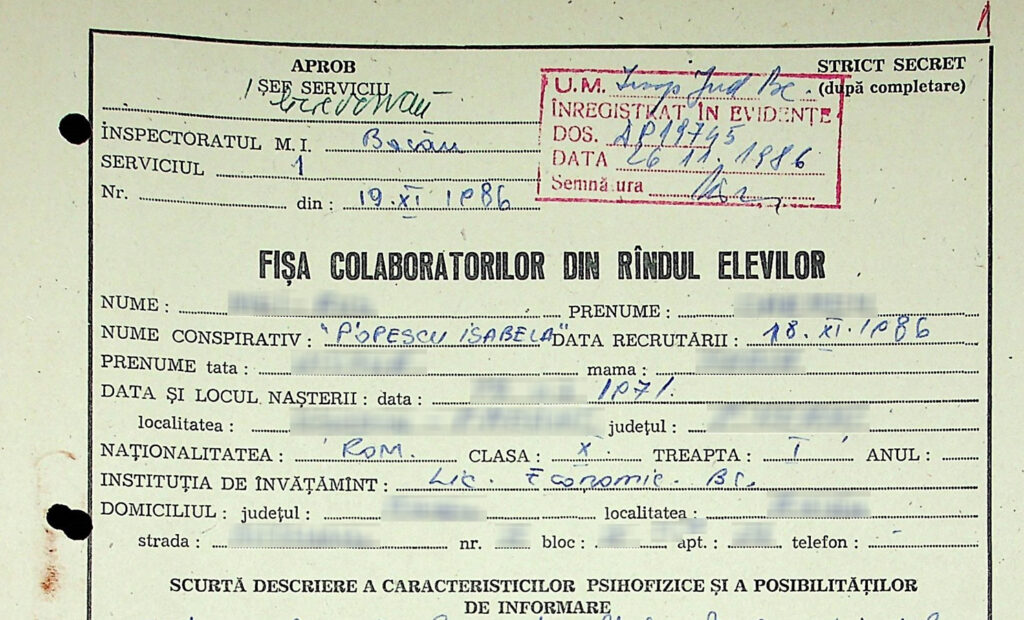 1
APROB
ȘEF SERVICIU
INSPECTORATUL M. I. Bacău
SERVICIUL 1
Nr. din : 19.XI 1986
STRICT SECRET
(după completare)
U.M. Insp Jud Bc.
ÎNREGISTRAT ÎN EVIDENȚE
DOS. 19745
DATA 26 11. 1986
Semnătura
FIȘA COLABORATORILOR DIN RÎNDUL ELEVILOR
NUME : PRENUME :
NUME CONSPIRATIV : "POPESCU ISABELA" DATA RECRUTĂRII : 18. XI. 1986
PRENUME tata : mama :
DATA ȘI LOCUL NAȘTERII : data : 1971.
localitatea : județul :
NAȚIONALITATEA : ROM. CLASA : X. TREAPTA : I ANUL :
INSTITUȚIA DE ÎNVĂȚĂMÎNT : Lic. Economic. BC.
DOMICILIUL : județul : localitatea :
strada : nr. bloc : apt. : telefon : -
SCURTĂ DESCRIERE A CARACTERISTICILOR PSIHOFIZICE ȘI A POSIBILITĂȚILOR
DE INFORMARE